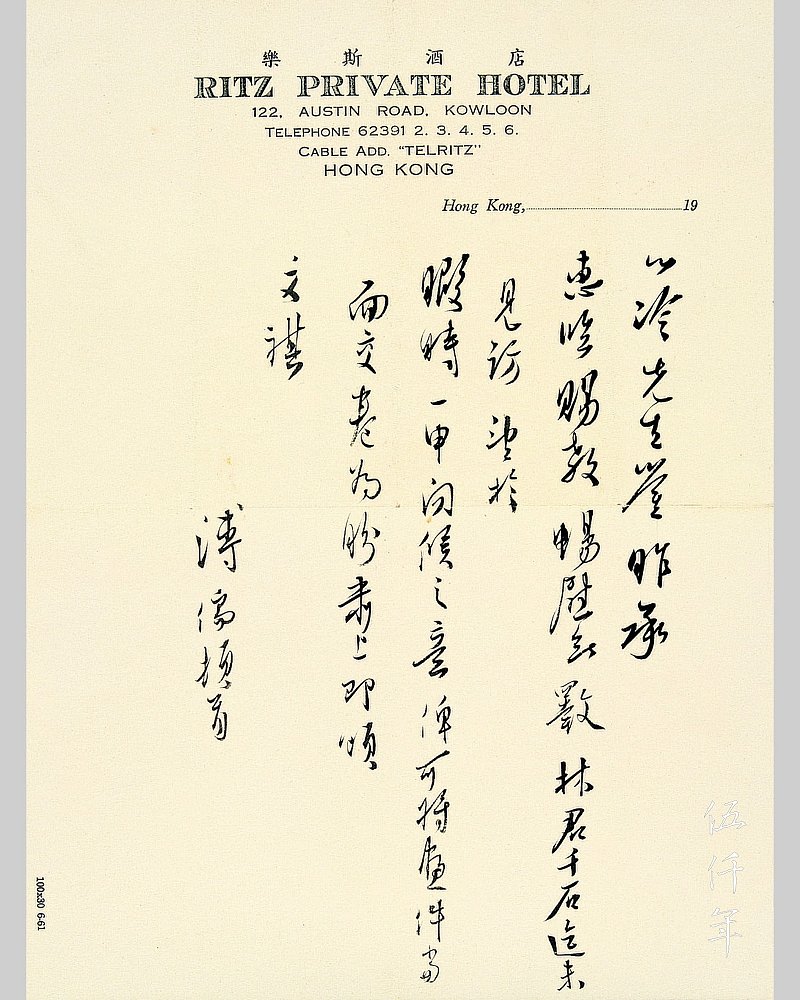 樂斯酒店
RITZ PRIVATE HOTEL
122, AUSTIN ROAD, KOWLOON
TELEPHONE 62391 2. 3. 4. 5. 6.
CABLE ADD. "TELRITZ"
HONG KONG
Hong Kong,........................19
心冷先生 昨承
惠臨賜教暢慰無斁林君千石迄未
見訪望於
暇時一申問候之意俾可將畫件當
面交卷為盼肅上即頌
文祺
溥儒頓首
100x30 6-61
伍仟年